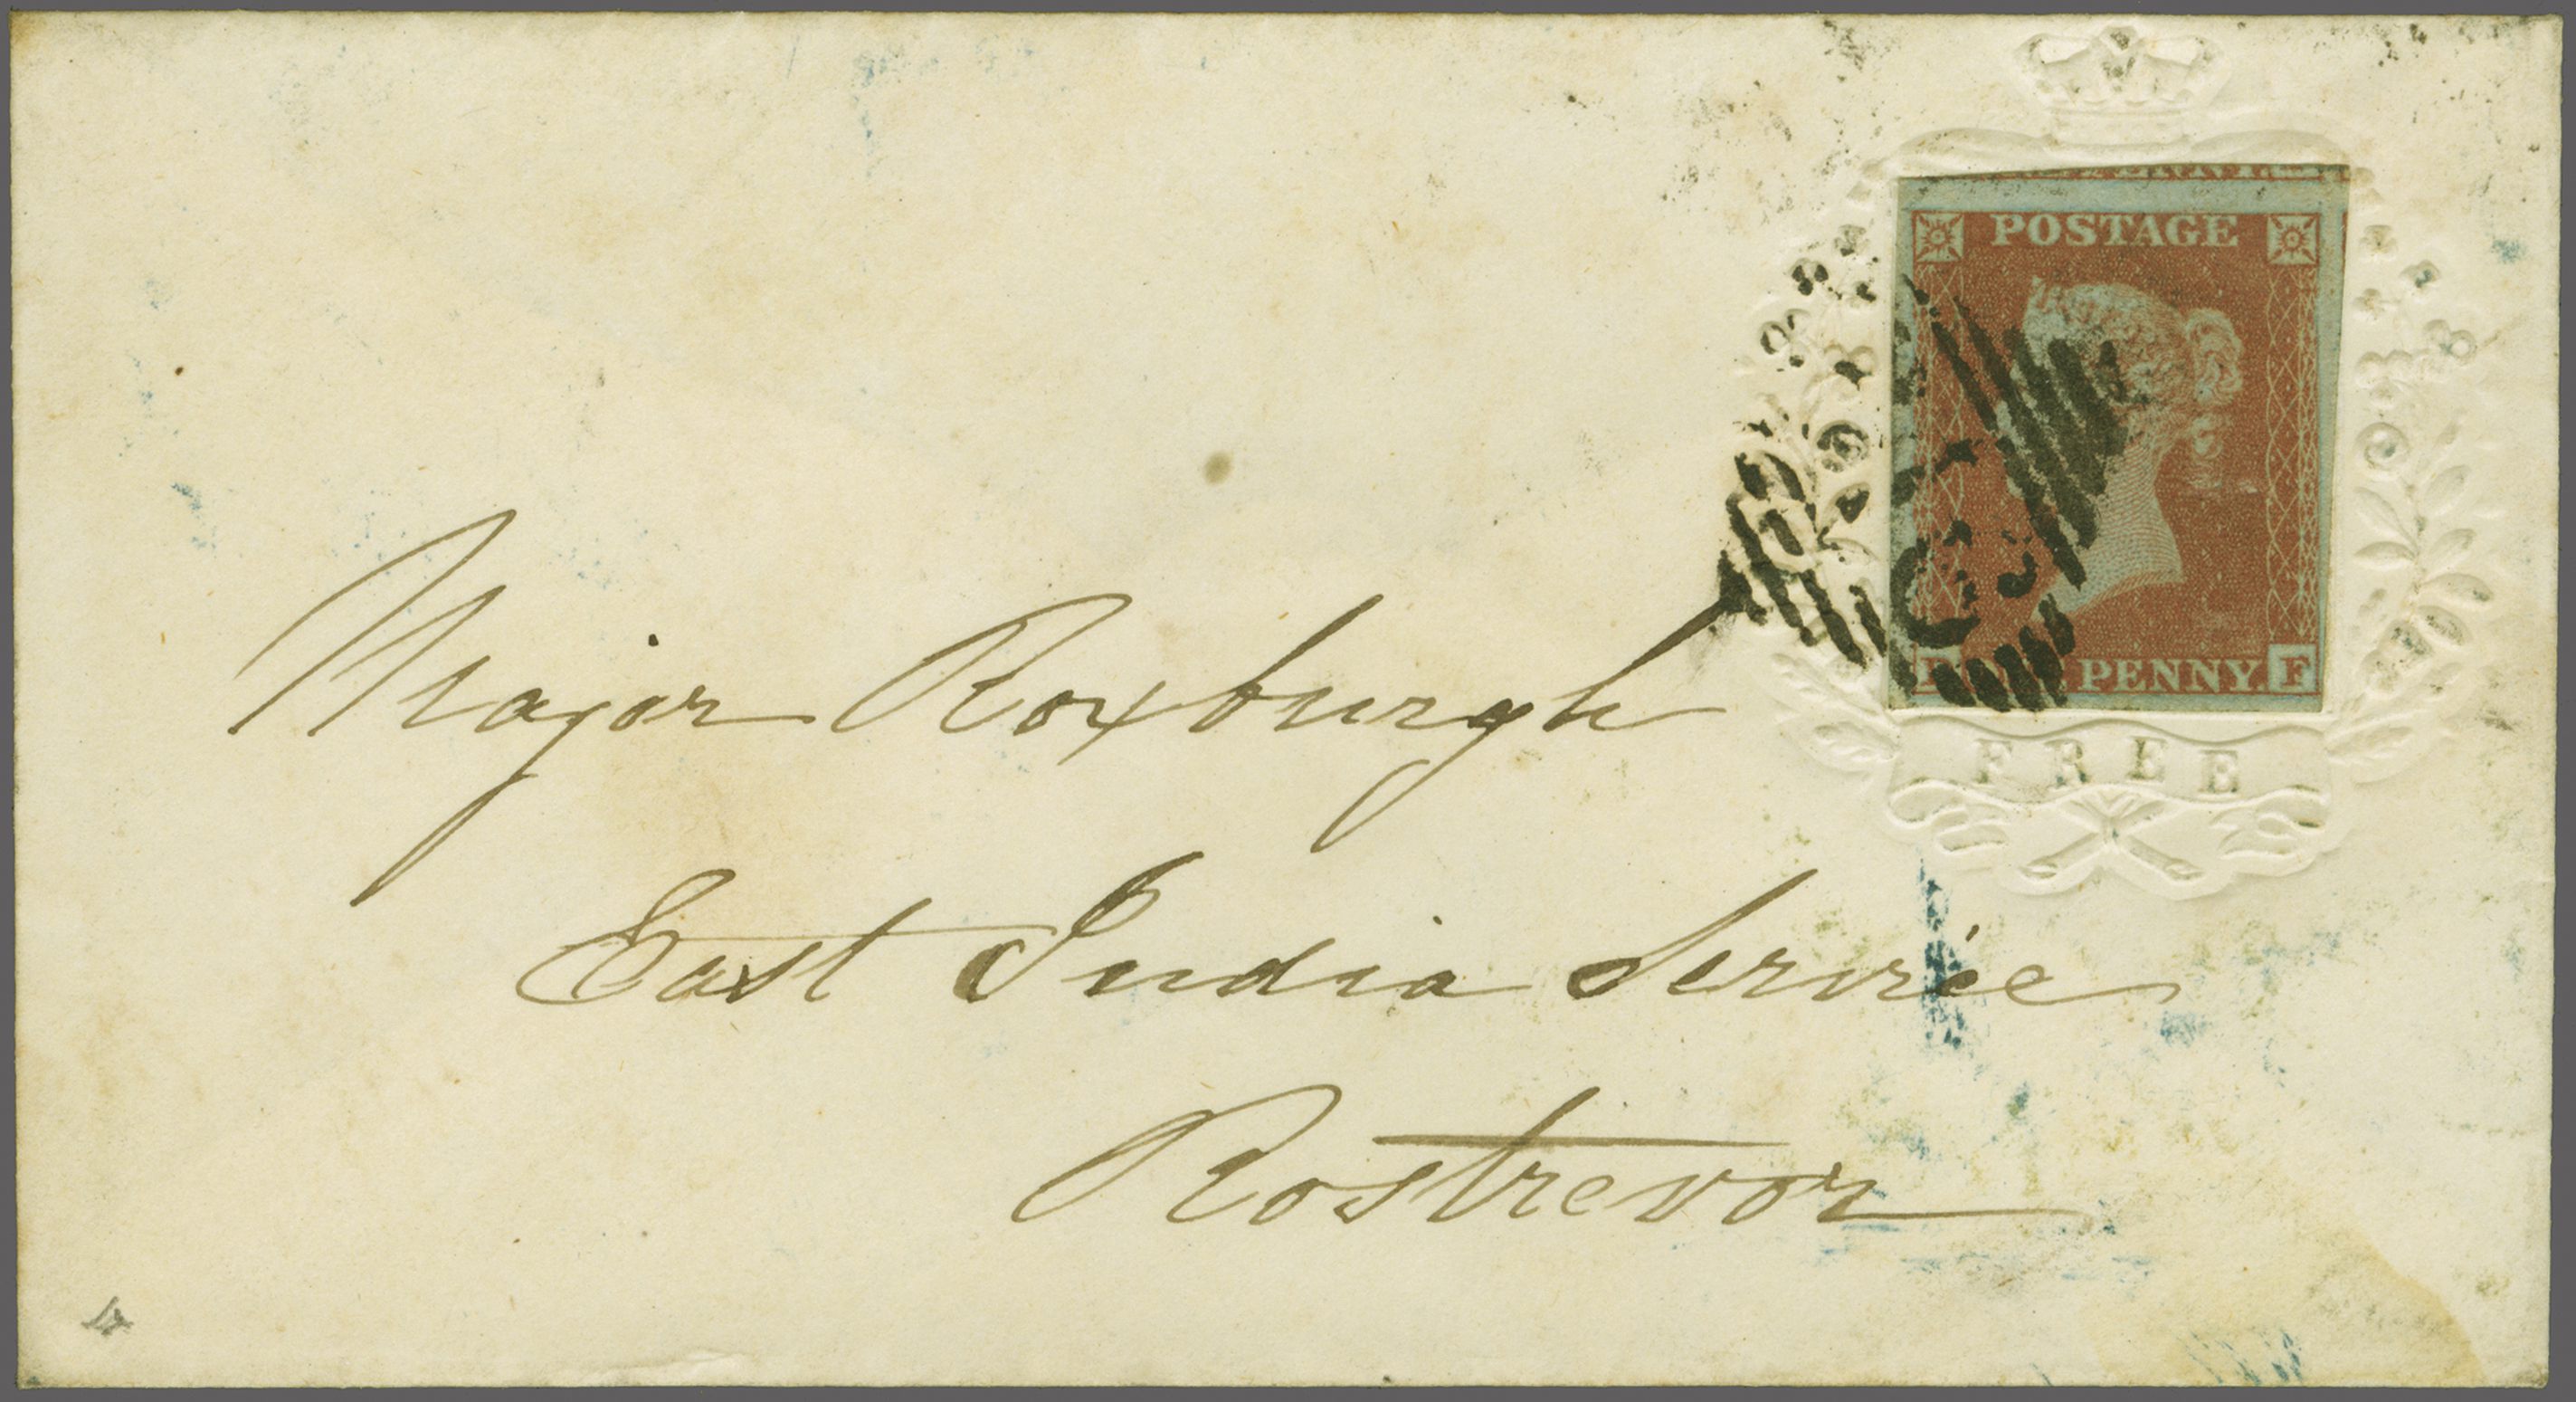 POSTAGE
PENNY. F
FREE
Major Roxburgh
East India Service
Rostrevor